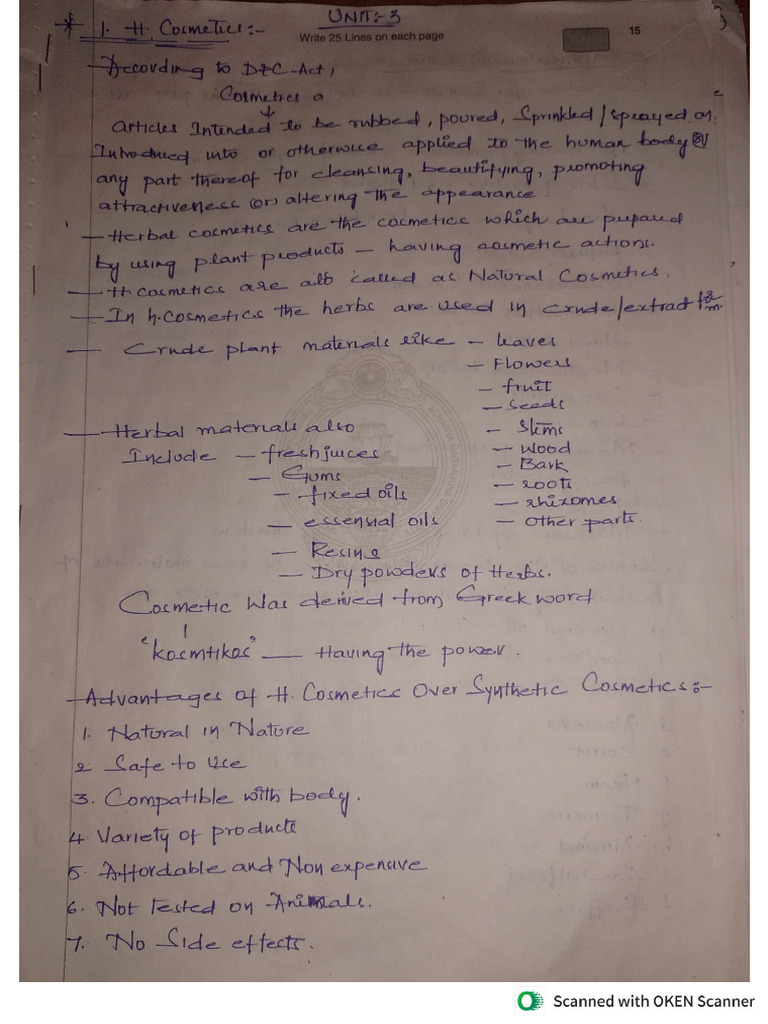 UNIT:- 3
* 1. H. Cosmetics:-
Write 25 Lines on each page
15
- According to D&C Act,
Cosmetics
articles Intended to be rubbed, poured, Sprinkled/sprayed on
Introduced into or otherwise applied to the human body
any part thereof for cleansing, beautifying, promoting
attractiveness (or) altering the appearance.
- Herbal cosmetics are the cosmetics which are prepared
by using plant products - having cosmetic actions.
- H. cosmetics are also called as Natural Cosmetics.
- In h.cosmetics the herbs are used in crude/extract form.
- Crude plant materials like - leaves
- Flowers
- fruit
- Seeds
- Stems
- Wood
- Bark
- roots
- rhizomes
- Other parts.
- Herbal materials also
Include - fresh juices
- Gums
- fixed oils
- essensial oils
- Resins
- Dry powders of Herbs.
Cosmetic Was derived from Greek word
"kosmtikos" - Having the power.
- Advantages of H. Cosmetics Over Synthetic Cosmetics:-
1. Natural in Nature
2. Safe to Use
3. Compatible with body.
4. Variety of products
5. Affordable and Non expensive
6. Not Tested on Animals.
7. No Side effects.
Scanned with OKEN Scanner